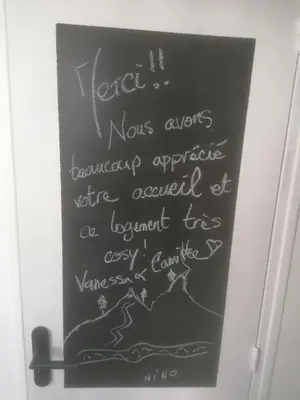 Merci!!
Nous avons
beaucoup apprécié
votre accueil et
ce logement très
cosy!
Vanessa & Camille
NINO